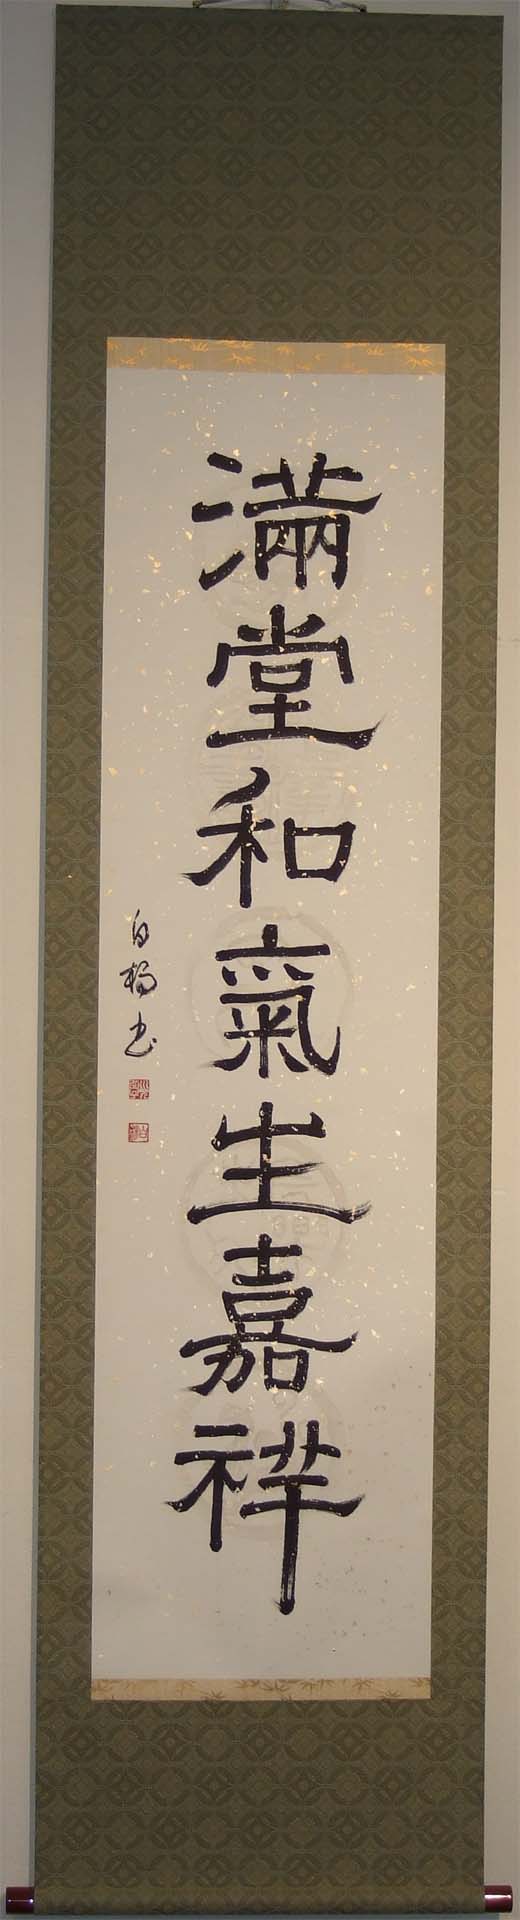 滿堂和氣生嘉祥
白楊書